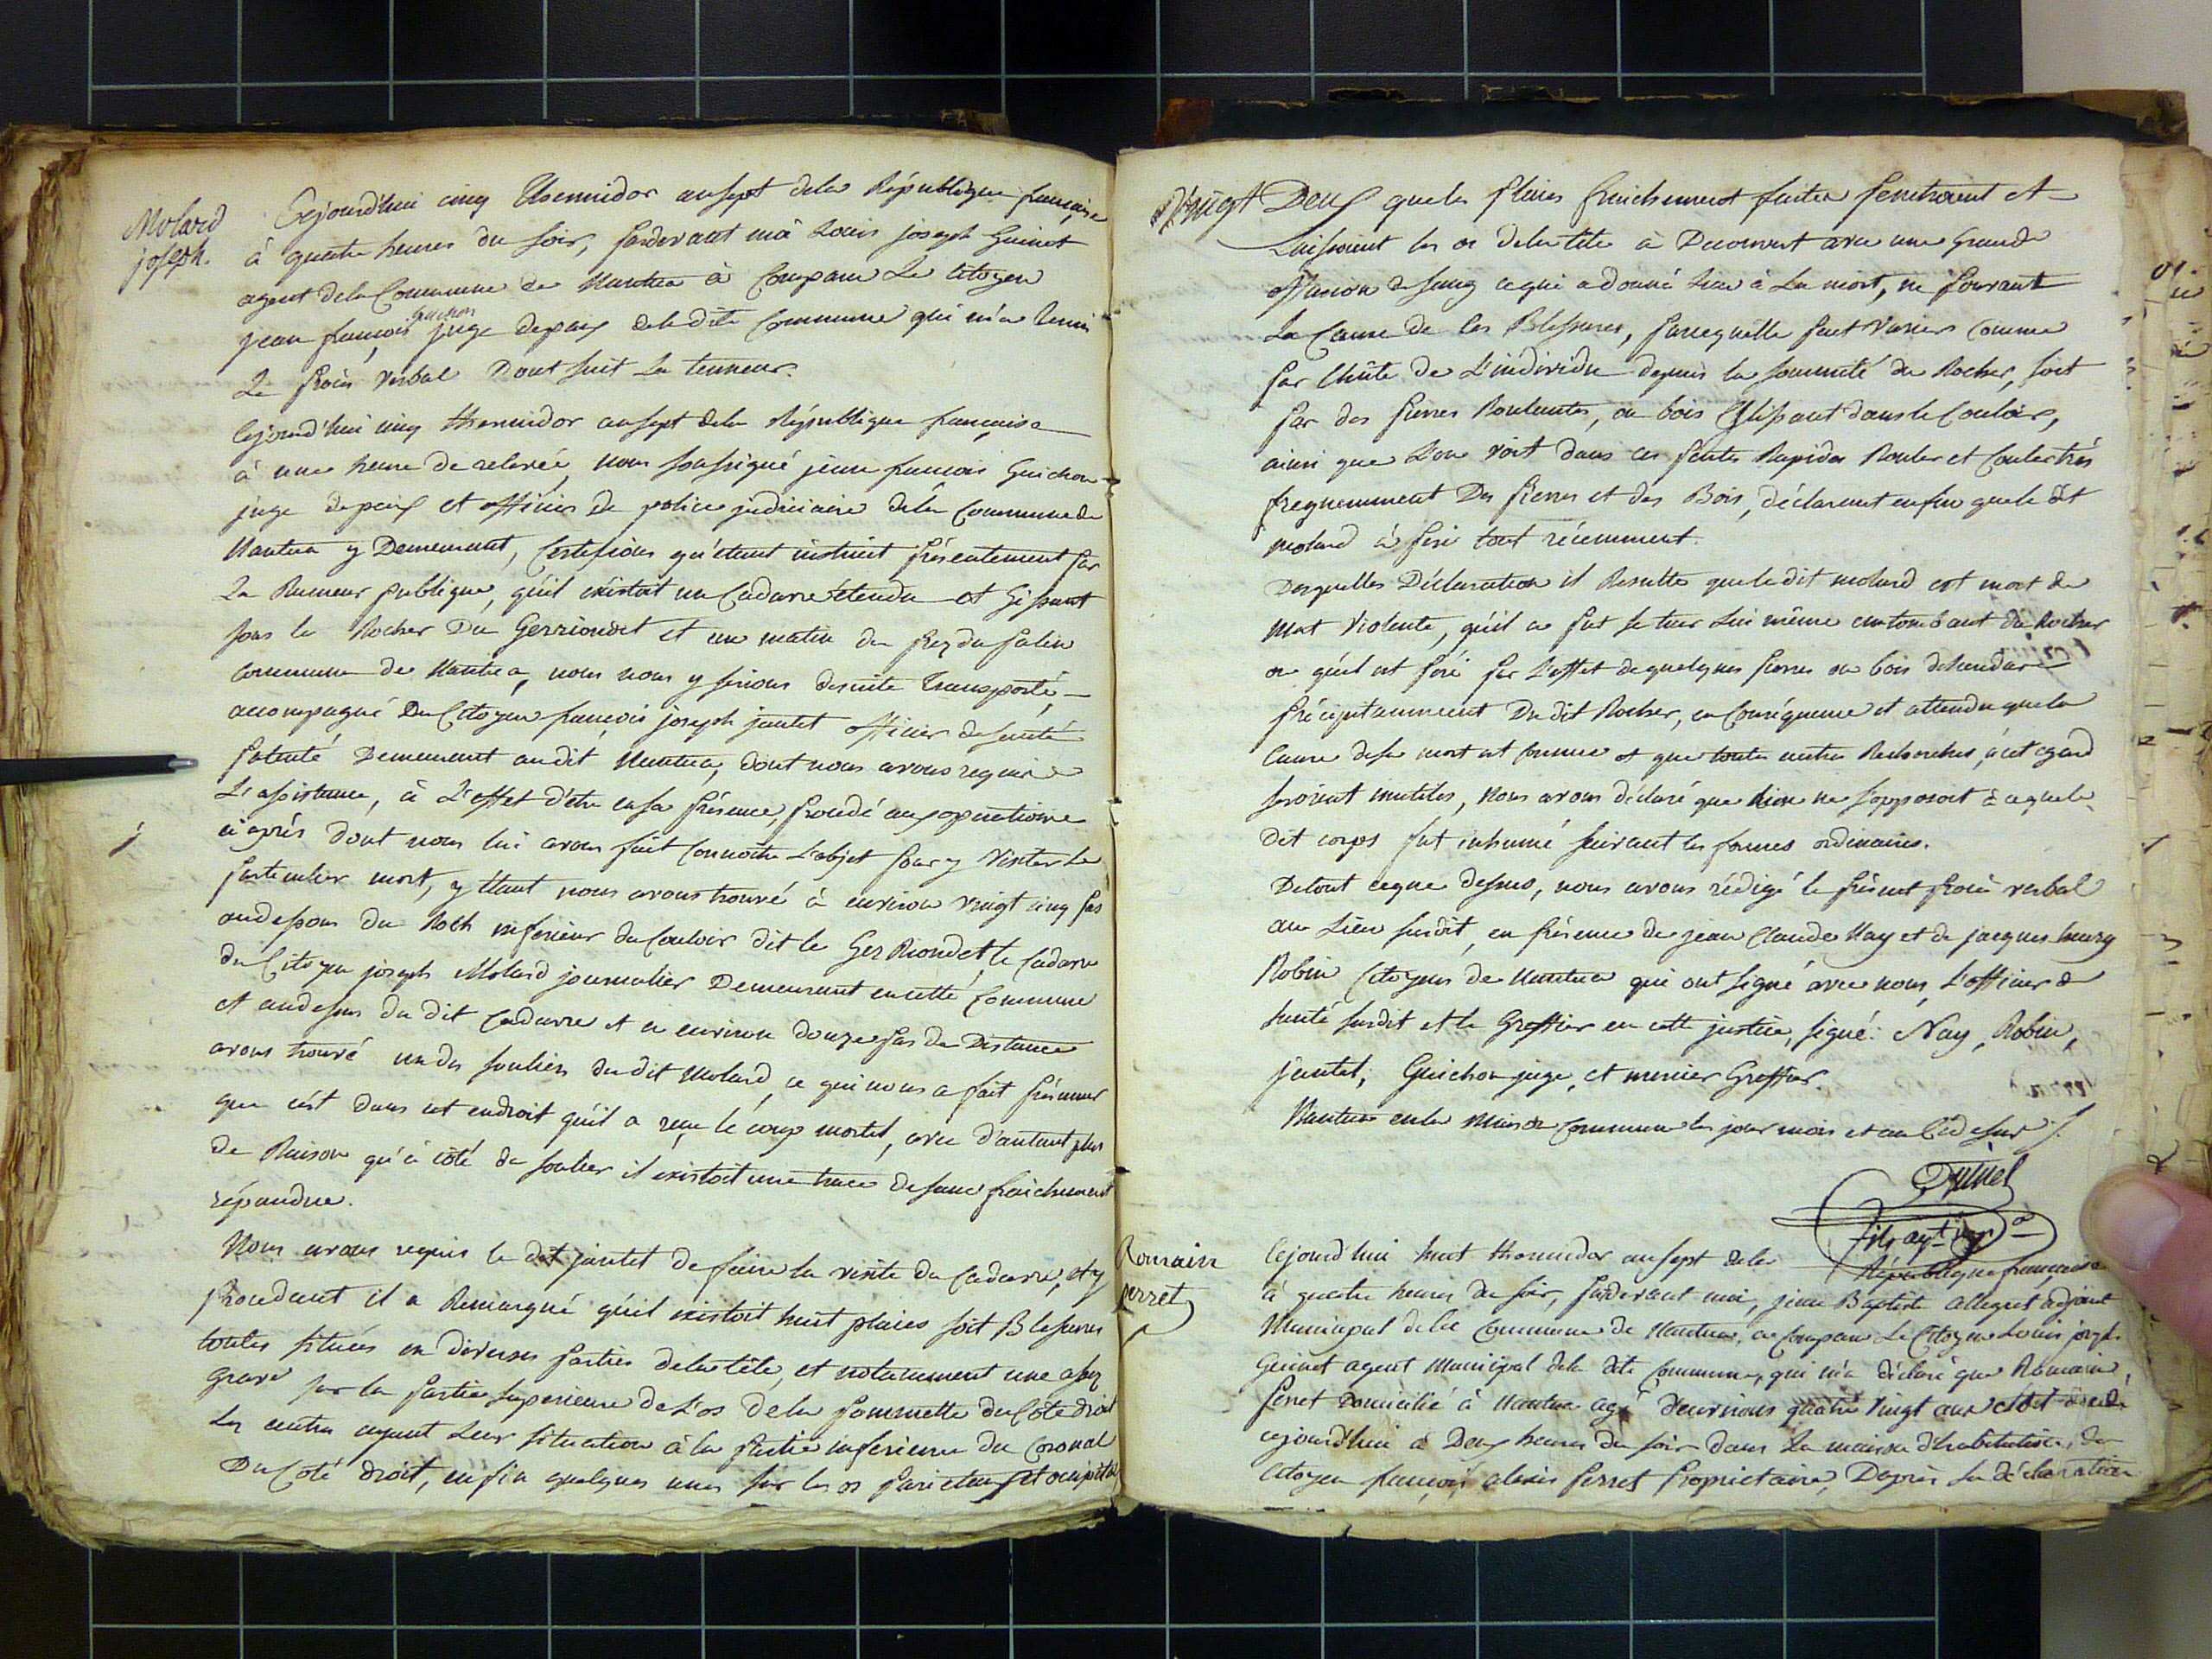 Molard
joseph.
Cejourd'hui cinq Thermidor an sept dela République française
à quatre heures du soir, pardevant moi Louis joseph Guinet
agent dela Commune de Nantua à Comparu Le Citoyen
jean françois Guichon juge de paix dela dite Commune qui m'a remis
Le procès verbal Dont suit La teneur.
Cejourd'hui cinq thermidor an sept dela République française
à une heure de relevée, nous soussigné jean francois Guichon
juge de paix et officier de police judiciaire dela Commune de
Nantua y Demeurant, Certifions qu'étant instruit présentement par
La Rumeur publique, qu'il existoit un Cadavre étendu et Gissant
sous le Rocher Du Gerriondet et un matin du
commune de Nantua, nous nous y serions desuite Transporté
accompagné Du Citoyen françois joseph jantet officier de santé
Patenté Demeurant audit Nantua, dont nous avons requis
L'assistance, à L'effet d'être en sa présence, procédé aux opérations
ci après dont nous lui avons fait Connoitre L'objet pour y Visiter Le
particulier mort, y étant nous avons trouvé à environ vingt cinq pas
audessous du Roch inferieur du Couloir dit le Ger Riondet, le Cadavre
du Citoyen joseph Molard journalier Demeurant en cette Commune
et audessus du dit Cadavre et a environ douze pas de Distance
avons trouvé un des souliers du dit Molard, ce qui nous a fait présumer
que c'ést dans cet endroit qu'il a reçu le coup mortel, avec d'autant plus
de Raison qu'à côté du soulier il existoit une trace de sang fraichement
répandue.
Nous avons requis le dit jantet de faire la visite du Cadavre, et y
procédant il a Remarqué qu'il existoit huit plaies soit Blessures
toutes situées en diverses parties dela tête, et notamment une assez
grave sur la partie superieure de L'os dela pommette du Côté droit
Les autres ayant Leur situation à la partie inferieure du Coronal
Du Coté droit, enfin quelques unes sur les os parietaux et occipital
Deux que les plaies fraichement faites penetroient et
Laissoient les os dela tête à Decouvert avec une Grande
effusion de sang ce qui a donné Lieu à La mort, ne pouvant
La Cause de Ces Blessures, parcequ'elle peut Varier Comme
par Chûte de L'individu depuis la sommité du Rocher, soit
par des pierres Roulantes, ou bois Glissant dans le Couloir,
ainsi que L'on voit dans ces pentes Rapides Rouler et Couler très
frequemment Des pierres et des Bois, déclarant enfin que le dit
molard à péri tout récemment.
Desquelles Déclaration il Resulte que le dit molard est mort de
Mort Violente, qu'il a put se tuer Lui même en tombant du Rocher
ou qu'il est péri par L'effet de quelques pierres ou bois
précipitamment Du dit Rocher, en Conséquence et attendu que la
Cause de sa mort est connue et que toutes autres Recherches, à cet égard
seroient inutiles, Nous avons déclaré que Rien ne s'opposoit à ce que le
dit corps fut inhumé suivant les formes ordinaires.
De tout ce que dessus, nous avons rédigé le présent procès verbal
au Lieu susdit, en présence de jean Claude Nay et de jacques henry
Robin Citoyens de Nantua qui ont signé avec nous, L'officier de
santé susdit et le Greffier en cette justice, signé: Nay, Robin,
jantet, Guichon juge, et mercier Greffier.
Nantua en la Maison Commune les jour mois et an Cidessus
Guinet
fils agt
Romain
perret
Cejourd'hui huit thermidor an sept dela République française
à quatre heures du soir, pardevant moi, jean Baptiste allegret adjoint
Municipal dela Commune de Nantua, a Comparu Le Citoyen Louis joseph
Guinet agent Municipal dela dite Commune, qui m'a déclaré que Romain
perret Domicilié à Nantua agé d'environs quatre vingt ans est décédé
cejourd'hui à Deux heures du soir dans La maison d'habitation, du
Citoyen françois alexis perret Proprietaire, Daprès La déclaration